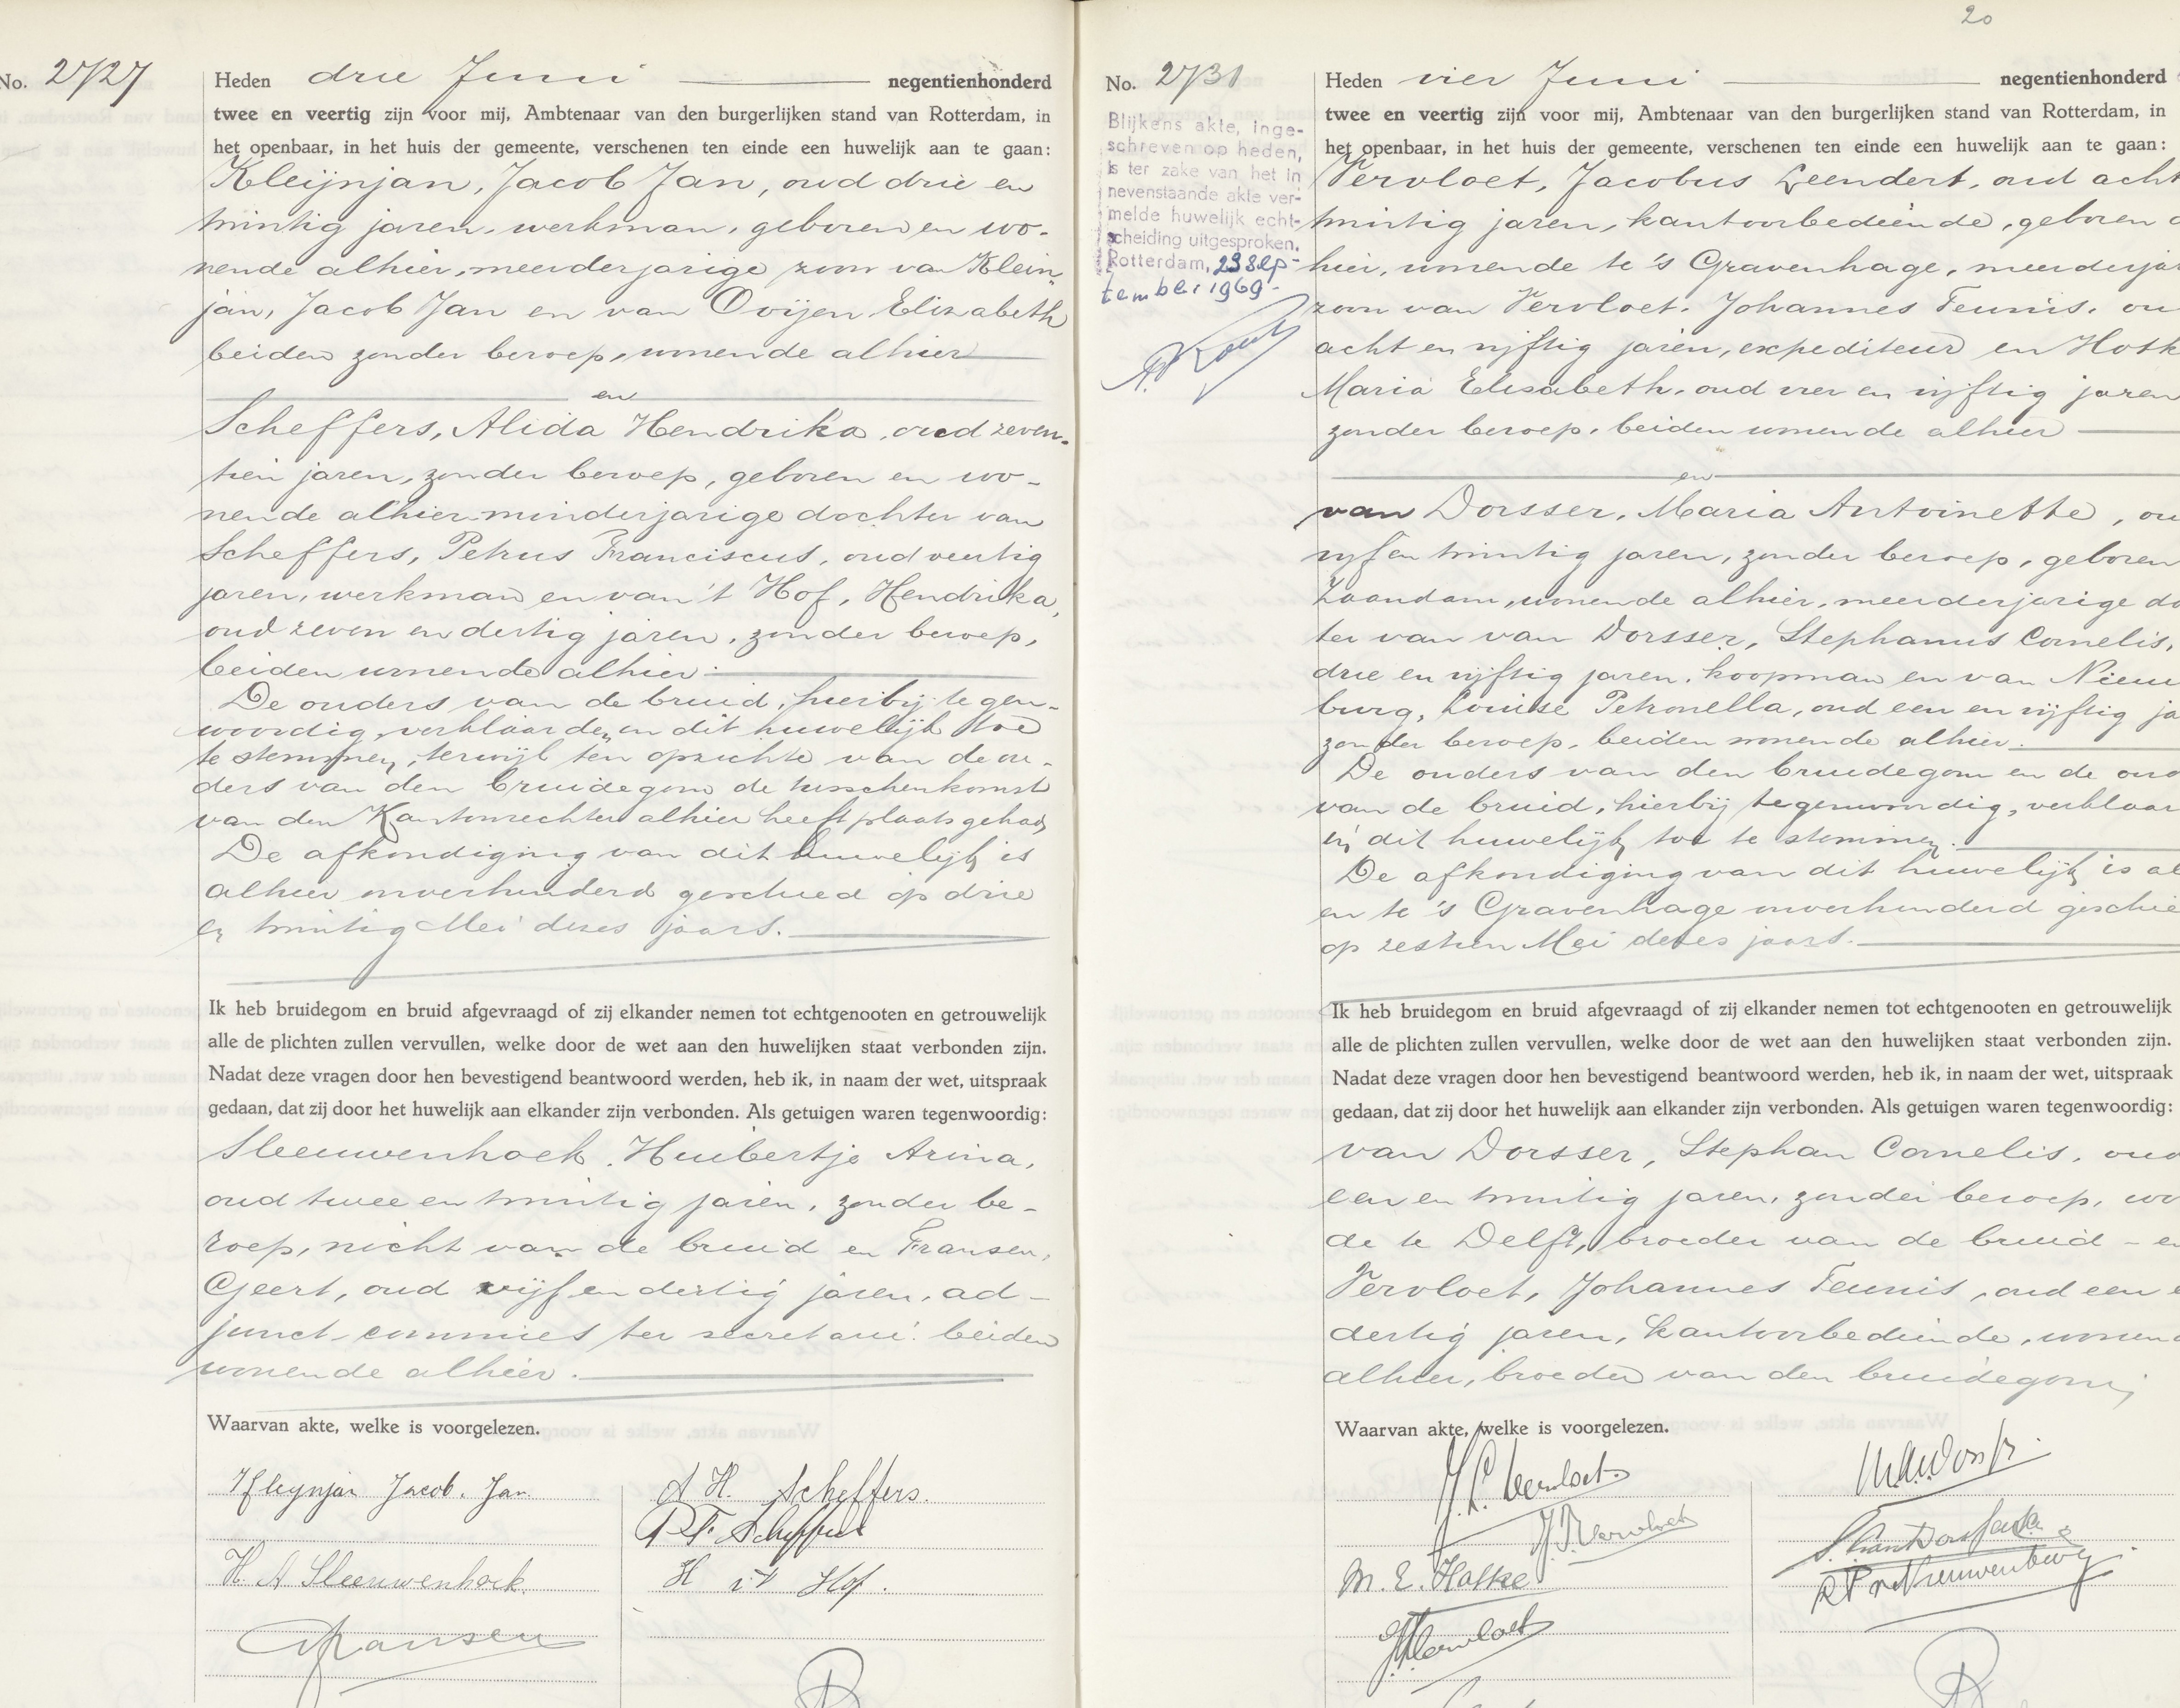 No. 2727
Heden drie Juni negentienhonderd
twee en veertig zijn voor mij, Ambtenaar van den burgerlijken stand van Rotterdam, in
het openbaar, in het huis der gemeente, verschenen ten einde een huwelijk aan te gaan:
Kleijnjan, Jacob Jan, oud drie en
twintig jaren, werkman, geboren en wo-
nende alhier, meerderjarige zoon van Klein„
jan, Jacob Jan en van Ovijen Elizabeth
beiden zonder beroep, wonende alhier
en
Scheffers, Alida Hendrika, oud zeven-
tien jaren, zonder beroep, geboren en wo-
nende alhier minderjarige dochter van
Scheffers, Petrus Franciscus, oud veertig
jaren, werkman en van 't Hof, Hendrika,
oud zeven en dertig jaren, zonder beroep,
beiden wonende alhier.
De ouders van de bruid, hierbij tegen-
woordig, verklaarden in dit huwelijk toe
te stemmen, terwijl ten opzichte van de ou-
ders van den bruidegom de tusschenkomst
van den Kantonrechter alhier heeft plaats gehad
De afkondiging van dit huwelijk is
alhier onverhinderd geschied op drie
en twintig Mei dezes jaars.
Ik heb bruidegom en bruid afgevraagd of zij elkander nemen tot echtgenooten en getrouwelijk
alle de plichten zullen vervullen, welke door de wet aan den huwelijken staat verbonden zijn.
Nadat deze vragen door hen bevestigend beantwoord werden, heb ik, in naam der wet, uitspraak
gedaan, dat zij door het huwelijk aan elkander zijn verbonden. Als getuigen waren tegenwoordig:
Sleeuwenhoek, Huibertje Arina,
oud twee en twintig jaren, zonder be-
roep, nicht van de bruid en Fransen,
Geert, oud vijf en dertig jaren, ad-
junct-commies ter secretarie. beiden
wonende alhier.
Waarvan akte, welke is voorgelezen.
Kleynjan Jacob. Jan.
A H. Scheffers.
P F. Scheffers
H. A Sleeuwenhoek.
H v 't Hof.
GFransen
20
No. 2731
Blijkens akte, inge-
schreven op heden,
is ter zake van het in
nevenstaande akte ver-
melde huwelijk echt-
scheiding uitgesproken.
Rotterdam, 23 Sep-
tember 1969.
Heden vier Juni negentienhonderd
twee en veertig zijn voor mij, Ambtenaar van den burgerlijken stand van Rotterdam, in
het openbaar, in het huis der gemeente, verschenen ten einde een huwelijk aan te gaan:
Vervloet, Jacobus Leendert, oud acht
twintig jaren, kantoorbediende, geboren
hier, wonende te 's Gravenhage, meerderjar
zoon van Vervloet. Johannes Teunis, ou
acht en vijftig jaren, expediteur en
Maria Elisabeth, oud vier en vijftig jaren
zonder beroep, beiden wonende alhier
en
van Dorsser, Maria Antoinette, ou
vijf en twintig jaren, zonder beroep, geboren
Zaandam, wonende alhier, meerderjarige do
ter van van Dorsser, Stephanus Cornelis,
drie en vijftig jaren, koopman en van Nieu
burg, Louise Petronella, oud een en vijftig ja
zonder beroep, beiden wonende alhier.
De ouders van den bruidegom en de oud
van de bruid, hierbij tegenwoordig, verklaar
in dit huwelijk toe te stemmen.
De afkondiging van dit huwelijk is al
en te 's Gravenhage onverhinderd geschie
op zestien Mei dezes jaars.
Ik heb bruidegom en bruid afgevraagd of zij elkander nemen tot echtgenooten en getrouwelijk
alle de plichten zullen vervullen, welke door de wet aan den huwelijken staat verbonden zijn.
Nadat deze vragen door hen bevestigend beantwoord werden, heb ik, in naam der wet, uitspraak
gedaan, dat zij door het huwelijk aan elkander zijn verbonden. Als getuigen waren tegenwoordig:
van Dorsser, Stephan Cornelis, oud
een en twintig jaren, zonder beroep, wo
de te Delft, broeder van de bruid - en
Vervloet, Johannes Teunis, oud een
dertig jaren, kantoorbediende, wonen
alhier, broeder van den bruidegom,
Waarvan akte, welke is voorgelezen.
J. L. Vervloet.
J. T. Vervloet
M. E. Hofke
Vervloet
L P v Nieuwenburg